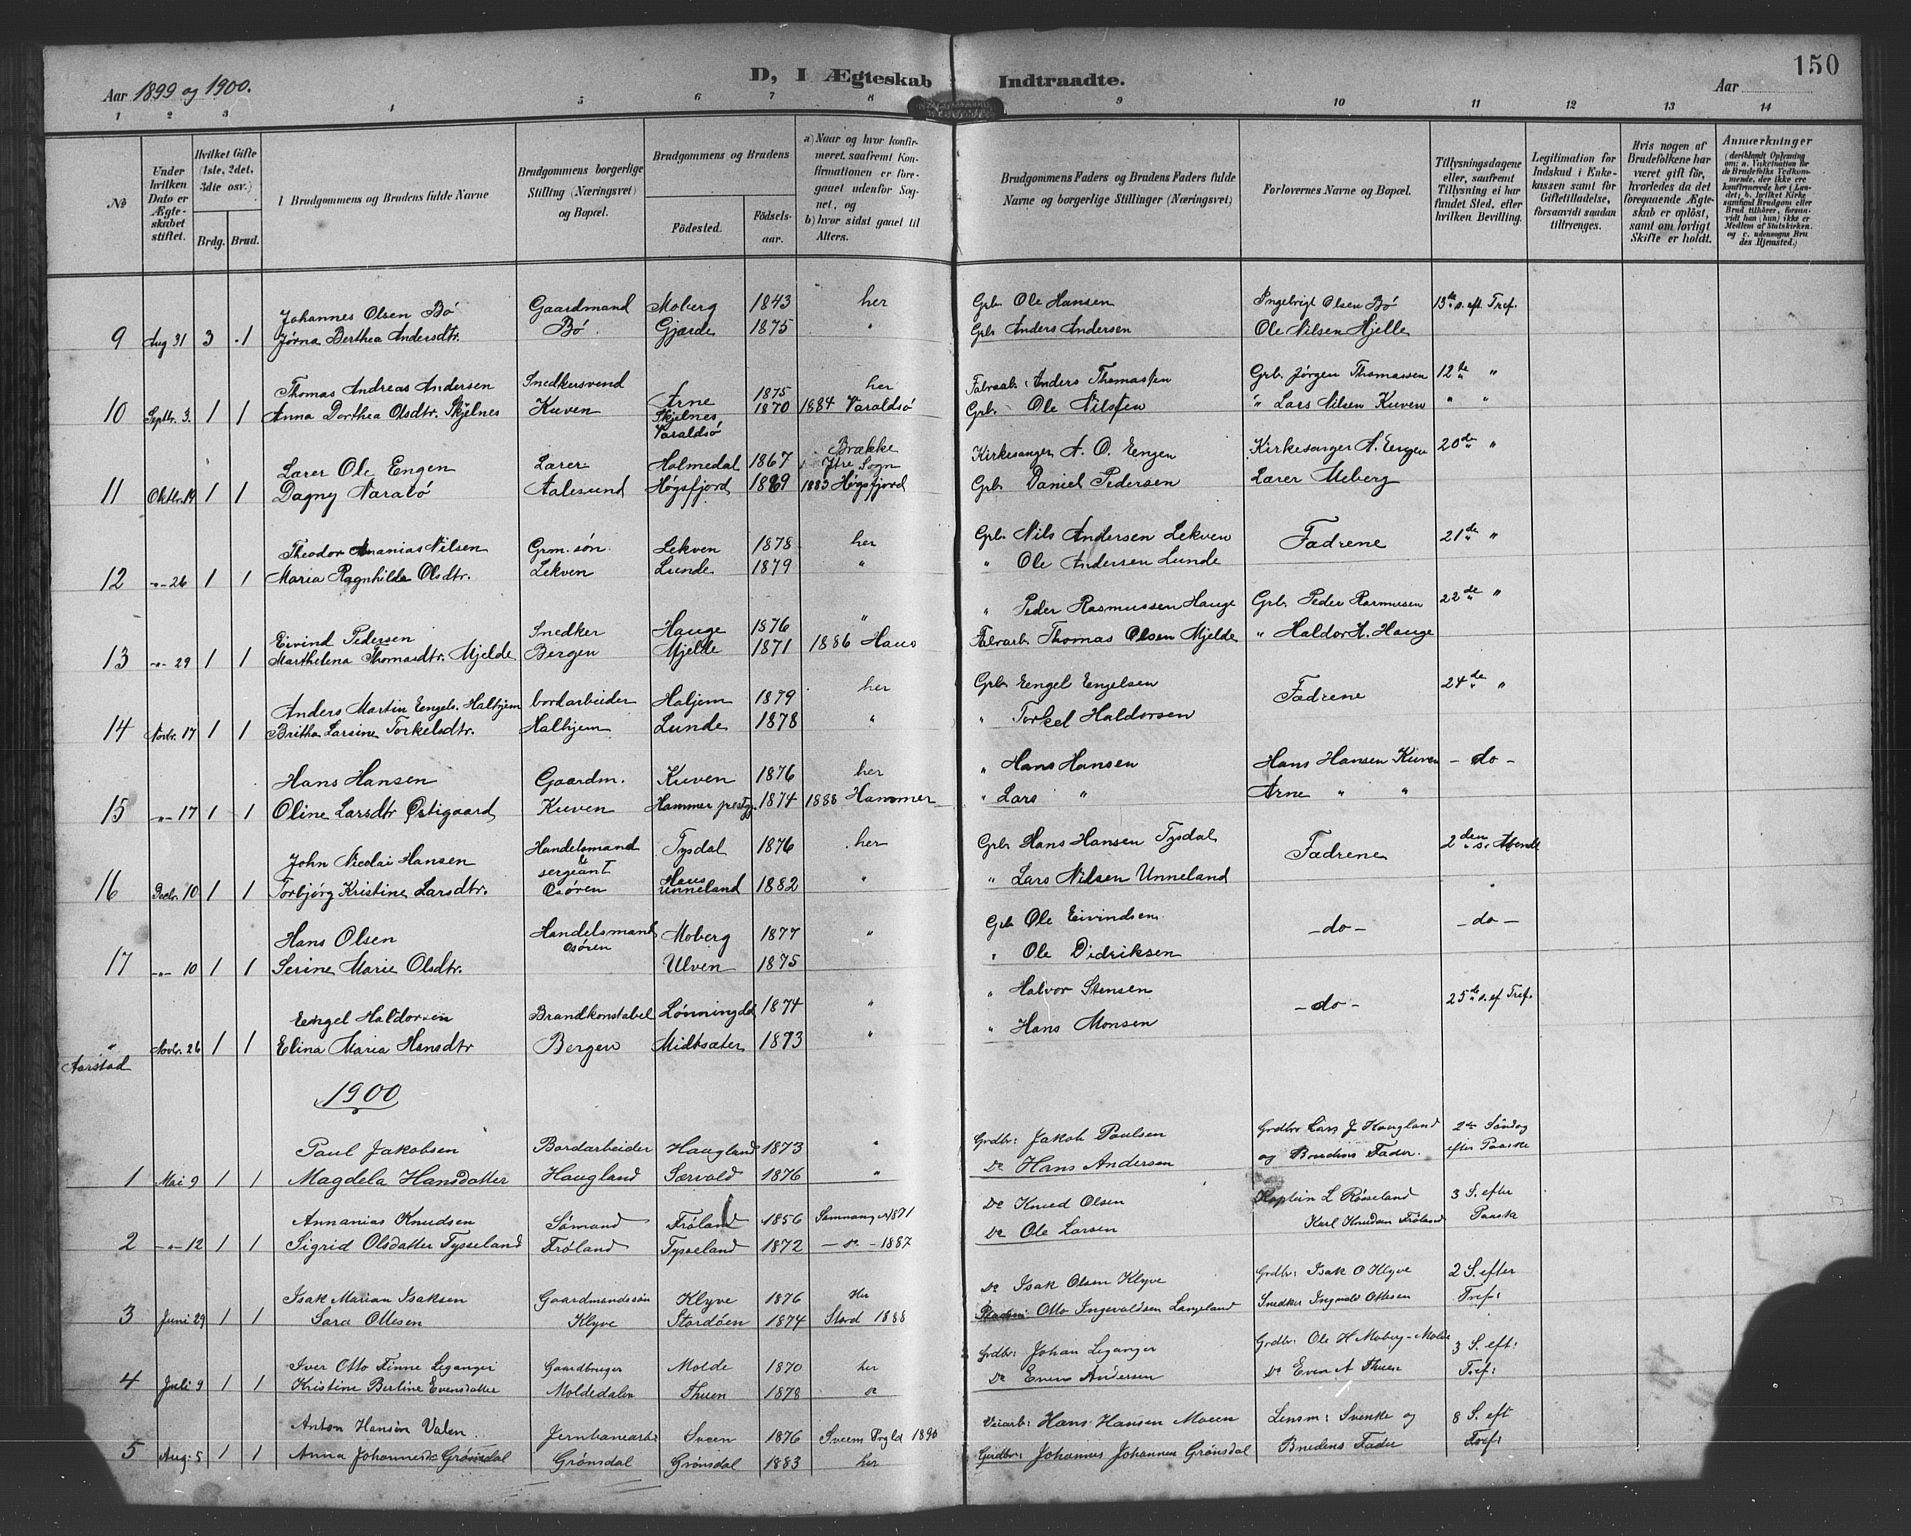 150
Aar 1899 og 1900.
D, I Ægteskab Indtraadte.
Aar
1 2 3 4 5 6 7 8 9 10 11 12 13 14
No
Under hvilken Dato er Ægteskabet stiftet.
Hvilket Gifte (1ste, 2det, 3die osv.)
Brdg. Brud.
Brudgommens og Brudens fulde Navne
Brudgommens borgerlige Stilling (Næringsvei) og Bopæl.
Brudgommens og Brudens
Fødested. Fødselsaar.
a) Naar og hvor konfirmeret, saafremt Konfirmationen er foregaaet udenfor Sognet, og
b) hvor sidst gaaet til Alters.
Brudgommens Faders og Brudens Faders fulde Navne og borgerlige Stillinger (Næringsvei)
Forlovernes Navne og Bopæl.
Tillysningsdagene eller, saafremt Tillysning ei har fundet Sted, efter hvilken Bevilling.
Legitimation for Indskud i Enkekassen samt for Giftetilladelse, forsaavidt saadan tiltrænges.
Hvis nogen af Brudefolkene har været gift før, hvorledes da det foregaaende Ægteskab er opløst, samt om lovligt Skifte er holdt.
Anmærkninger
Johannes Olsen Bø Gaardmand Moberg 1843 her Grb. Ole Hansen Ingebrigt Olsen Bø 13de s. eft. Tref.
9 Aug 31 3 1 Jørna Berthea Andersdtr. Bø. Gjærde 1875 " Grb. Anders Andersen Ole Nilsen Hjelle
Thomas Andreas Andersen Snedkersvend Arne 1875 her Anders Thomassen Grb. Jørgen Thomassen 12te "
10 Septbr. 3. 1 1 Anna Dorthea Olsdtr. Skjelnes Kuven Skjelnes Varaldsø 1870 1884 Varaldsø Grb. Ole Nilssen " Lars Nilsen Kuven " "
Lærer Ole Engen Lærer Holmedal 1867 Brække Ytre Sogn Kirkesanger A. O. Engen Kirkesanger A. Engen 20de "
11 Oktbr. 14 1 1 Dagny Aalesund Høgsfjord 1869 1883 Høgsfjord Grb. Daniel Pedersen Lærer Meberg
Theodor Ananias Nilsen Grm. søn. Lekven 1878 her Grb. Nils Andersen Lekven Fædrene 21de "
12 -"- 26 1 1 Maria Ragnhilda Olsdtr. Lekven Lunde 1879 " " Ole Andersen Lunde
Eivind Pedersen Snedker Hauge 1876 " " Peder Rasmussen Hauge Grb. Peder Rasmusen 22de "
13 -"- 29 1 1 Marthelena Thomasdtr. Mjelde Bergen Mjelde 1871 1886 Haus Thomas Olsen Mjelde " Haldor H. Hauge
Anders Martin Eengels. Halhjem bordarbeider Haljem 1879 her Grb. Eengel Engelsen Fædrene 24de "
14 Novbr. 17 1 1 Britha Larsine Torkelsdtr. Halhjem Lunde 1878 " " Torkel Haldorsen
Hans Hansen Gaardm. Kuven 1876 her " Hans Hansen Hans Hansen Kuven - do -
15 -"- 17 1 1 Oline Larsdtr Østigaard Kuven Hammer prestgj. 1874 1888 Hammer " Lars " Arne " "
John Nicolai Hansen Handelsmand & sergeant Tysdal 1876 her Grb. Hans Hansen Tysdal Fædrene 2den s. i Advende
16 Decbr. 10 1 1 Torbjørg Kristine Larsdtr. Osøren Haus Unneland 1882 " " Lars Nilsen Unneland "
Hans Olsen Handelsmand Osøren Moberg 1877 " Grb Ole Eivindsen - do - - do -
17 -"- 10 1 1 Serine Marie Olsdtr. Ulven 1875 " Ole Didriksen
Eengel Haldorsen Brandkonstabel Lønningdal 1874 " " Halvor Stensen - do - 25de s. ef Tref.
" Aarstad Novbr. 26 1 1 Elina Maria Hansdtr Bergen Midtsæter 1873 " " Hans Monsen
1900
Paul Jakobsen Bordarbeider Haugland 1873 " Grdbr: Jakob Paulsen Grdbr Lars J Haugland 2den Søndag
1 Mai 9 1 1 Magdela Hansdatter Haugland Særvold 1876 " Do Hans Andersen og Brudens Fader. efter Paaske
Annanias Knudsen Sømand Frøland 1856 Samnanger 1871 Do Knud Olsen Kaptein L Røiseland 3 S. efter
2 -"- 12 1 1 Sigrid Olsdatter Tysseland Frøland Tysseland 1872 - do - 1887 Do Ole Larsen Karl Knudsen Frøland Paaske
Isak Marian Isaksen Gaardmandssøn Klyve 1876 Her Do Isak Olsen Klyve Grdbr: Isak O Klyve 2 S. efter
3 Juni 29 1 1 Sara Ottesen Klyve Stordøen 1874 Stord 1888 Otto Ingevaldsen Langeland Snedker Ingvald Ottesen Tref:
Iver Otto Finne Leganger Gaardbruger Molde 1870 her Grdbr: Johan Leganger Grdbr: Ole H Moberg - Molde 3 S. eft:
4 Juli 9 1 1 Kristine Berline Evensdatter Moldedalen Thuen 1878 do Do Even Andersen Do Even A Thuen Tref:
Anton Hansen Valen Jernbanearb: Sveen 1876 Sveen Prgld 1890 Veiarb: Hans Hansen Moen Lensm: Svenke og 8 S. eft
5 Aug: 5 1 1 Anna Johannesdr Grønsdal Grønsdal Grønsdal 1883 her Gardbr: Johannes Johannesen Grønsdal Brudens Fader Tref: